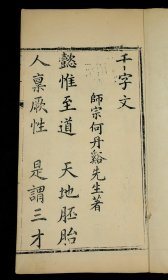 千字文
師宗何丹谿先生著
懿惟至道　天地胚胎
人稟厥性　是謂三才